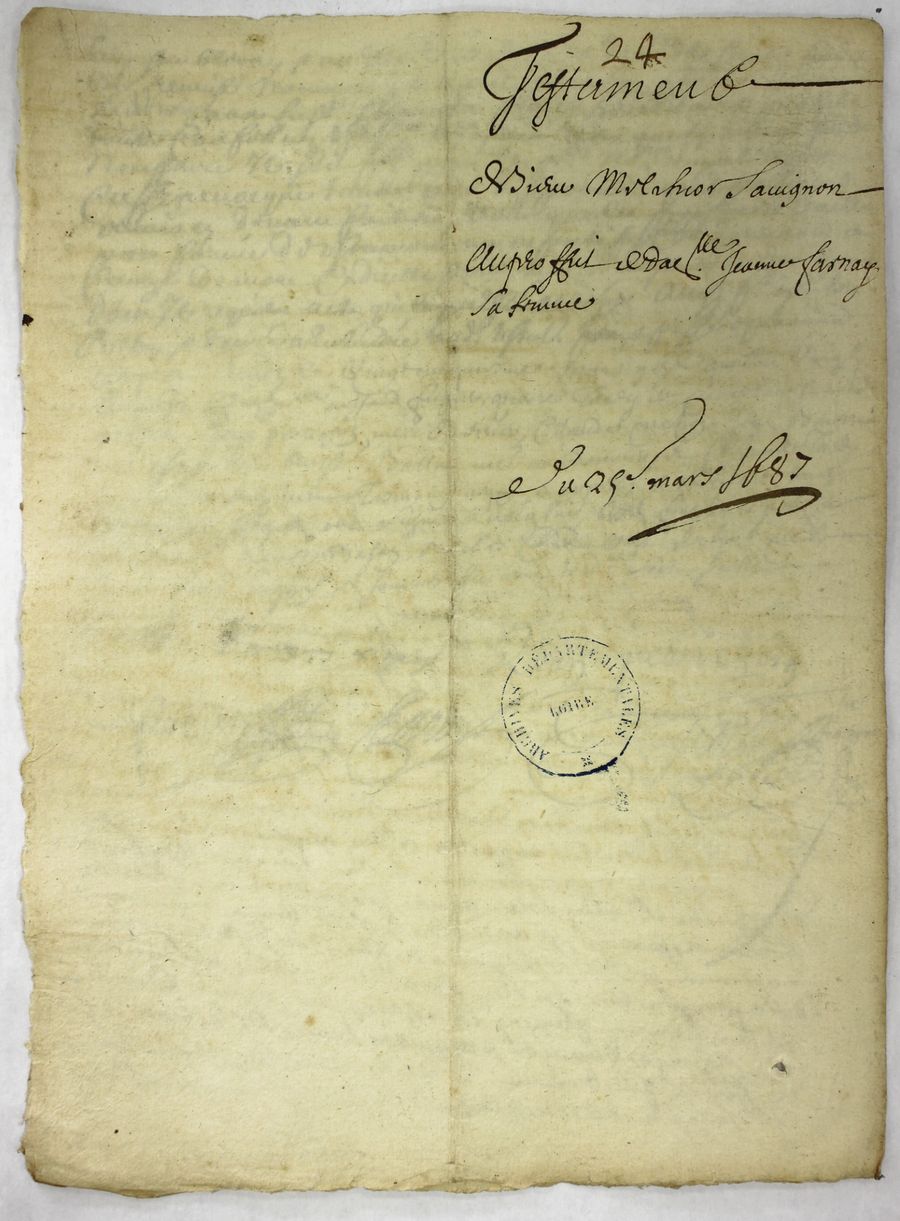 24
Testament
de Sieur Melchior Sauignon
Au proffit de dae^lle Jeanne Jarnay
Sa femme
Du 25^e. mars 1687
ARCHIVES DÉPARTEMENTALES
LOIRE